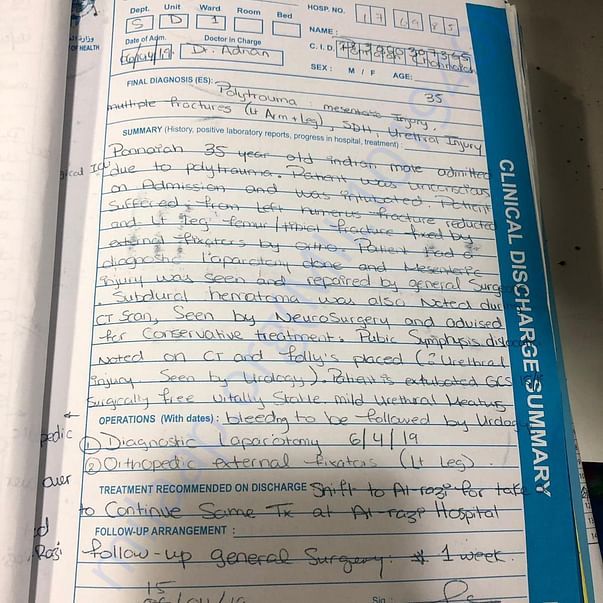 Dept.
Unit
Ward
Room
Bed
HOSP. NO.
S
D
1
1 7 6 9 8 5
NAME :
Date of Adm.
Doctor in Charge
OF HEALTH
06/04/19
Dr. Adnan
C. I. D.
SEX : M / F AGE:
35
FINAL DIAGNOSIS (ES):
Polytrauma : mesenteric Injury,
multiple fractures (Lt Arm + Leg), SDH, Urethral Injury
SUMMARY (History, positive laboratory reports, progress in hospital, treatment) :
35 year old indian male admitted
due to polytrauma. Patient was unconscious
on Admission and was intubated. Patient
suffered from Left humerus fracture reduced
and Lt Leg femur / tibial fracture fixed by
external fixators by ortho. Patient had a
diagnostic laparatomy done and Mesenteric
injury was seen and repaired by general Surgery
. Subdural hematoma was also Noted due
CT Scan, Seen by NeuroSurgery and advised
for Conservative treatment. Pubic Symphysis
Noted on CT and folly's placed (? Urethral
injury. Seen by Urology). Patient is extubated GCS
Surgically free vitally Stable. mild Urethral Meatus
OPERATIONS (With dates) : bleeding to be followed by Urology
① Diagnostic Lapariotomy 6/4/19
② Orthopedic external fixators (Lt Leg).
TREATMENT RECOMMENDED ON DISCHARGE Shift to Al-razi for take
to Continue Same Tx at Al-razi Hospital
FOLLOW-UP ARRANGEMENT :
follow-up general Surgery. 1 week.
15
Sig :
CLINICAL DISCHARGE SUMMARY